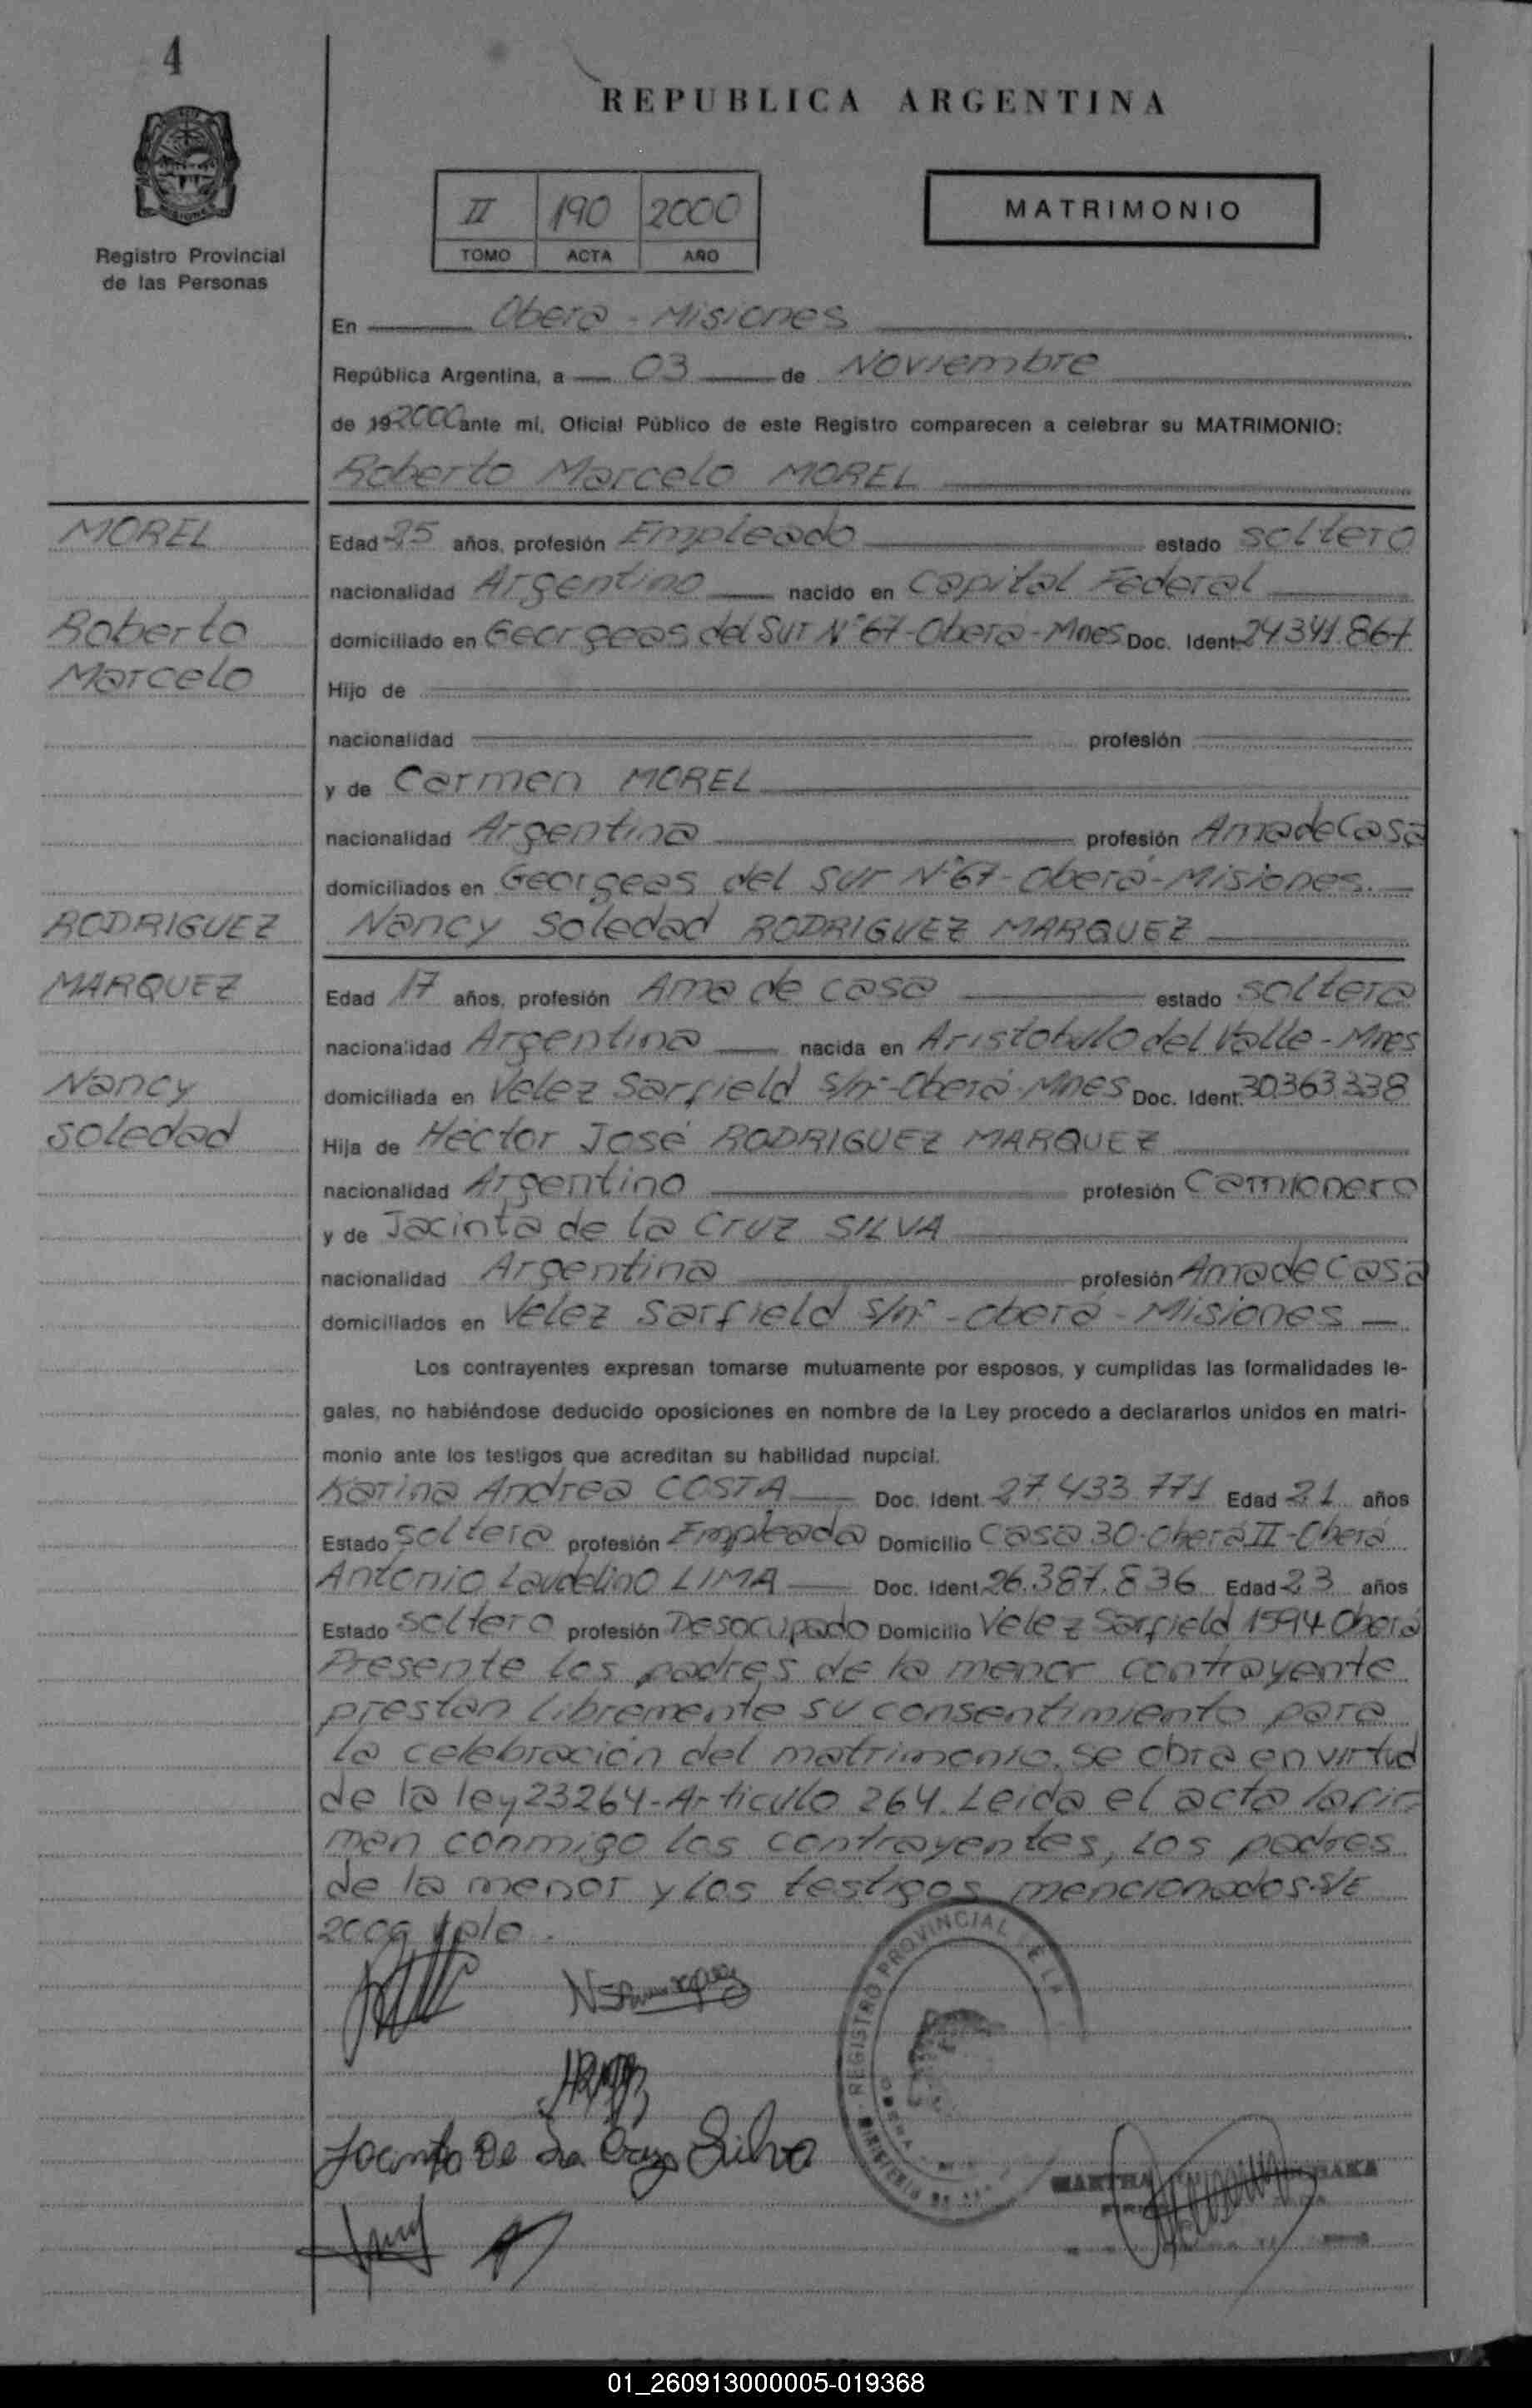 4
REPUBLICA ARGENTINA
Registro Provincial
de las Personas
II 190 2000
TOMO ACTA AÑO
MATRIMONIO
En Oberá - Misiones
República Argentina, a 03 de Noviembre
de 19 2000 ante mí, Oficial Público de este Registro comparecen a celebrar su MATRIMONIO:
Roberto Marcelo MOREL
MOREL
Roberto
Marcelo
Edad 25 años, profesión Empleado estado soltero
nacionalidad Argentino nacido en Capital Federal
domiciliado en Georgeas del Sur N°67-Oberá-Mnes Doc. Ident. 24.341.867
Hijo de
nacionalidad profesión
y de Carmen MOREL
nacionalidad Argentina profesión Ama de Casa
domiciliados en Georgeas del Sur N°67-Oberá-Misiones.
Nancy Soledad RODRIGUEZ MARQUEZ
RODRIGUEZ
MARQUEZ
Nancy
Soledad
Edad 17 años, profesión Ama de casa estado soltera
nacionalidad Argentina nacida en Aristobulo del Valle - Mnes
domiciliada en Velez Sarfield s/n°-Oberá-Mnes Doc. Ident. 30.363.338
Hija de Héctor José RODRIGUEZ MARQUEZ
nacionalidad Argentino profesión Camionero
y de Jacinta de la Cruz SILVA
nacionalidad Argentina profesión Ama de Casa
domiciliados en Velez Sarfield s/n° - Oberá - Misiones
Los contrayentes expresan tomarse mutuamente por esposos, y cumplidas las formalidades le-
gales, no habiéndose deducido oposiciones en nombre de la Ley procedo a declararlos unidos en matri-
monio ante los testigos que acreditan su habilidad nupcial.
Karina Andrea COSTA Doc. Ident. 27.433.771 Edad 21 años
Estado Soltera profesión Empleada Domicilio Casa 30-Oberá II-Oberá
Antonio Laudelino LIMA Doc. Ident. 26.387.836 Edad 23 años
Estado Soltero profesión Desocupado Domicilio Velez Sarfield 1594 Oberá
Presente los padres de la menor contrayente
prestan libremente su consentimiento para
la celebración del matrimonio, se obra en virtud
de la ley 23264-Articulo 264. Leida el acta la fir
man conmigo los contrayentes, los padres
de la menor y los testigos mencionados-S/E
2000 Vale.
Jacinta De La Cruz Silva
REGISTRO PROVINCIAL DE LA
MINISTERIO DE
MARTHA
01_260913000005-019368